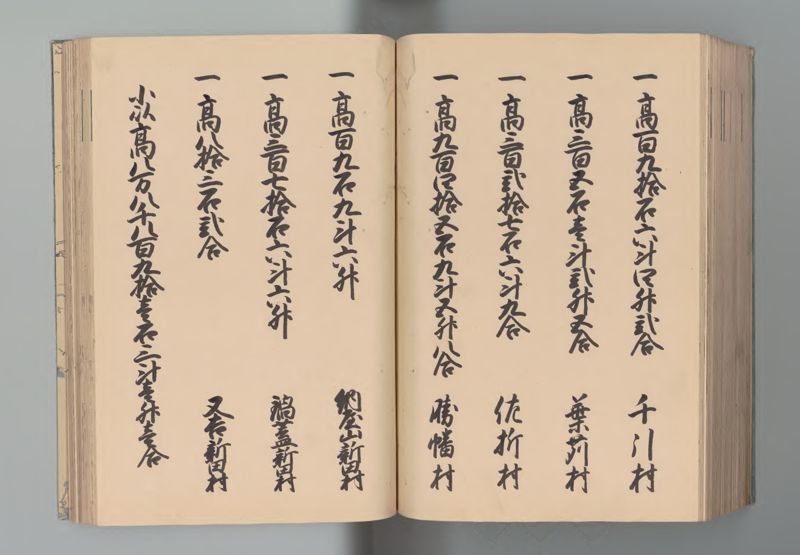 一高百九拾石六斗四升弐合 千引村
一高三百五石壱斗弐升五合 葉苅村
一高三百弐拾七石六斗九合 佐折村
一高九百四拾五石九斗五升八合 勝幡村
一高百九石九斗六升 納屋山新田村
一高三百七拾石六斗六升 鍋蓋新田村
一高八拾三石弐合 又吉新田村
小以高 万八千八百九拾壱石三斗壱升壱合